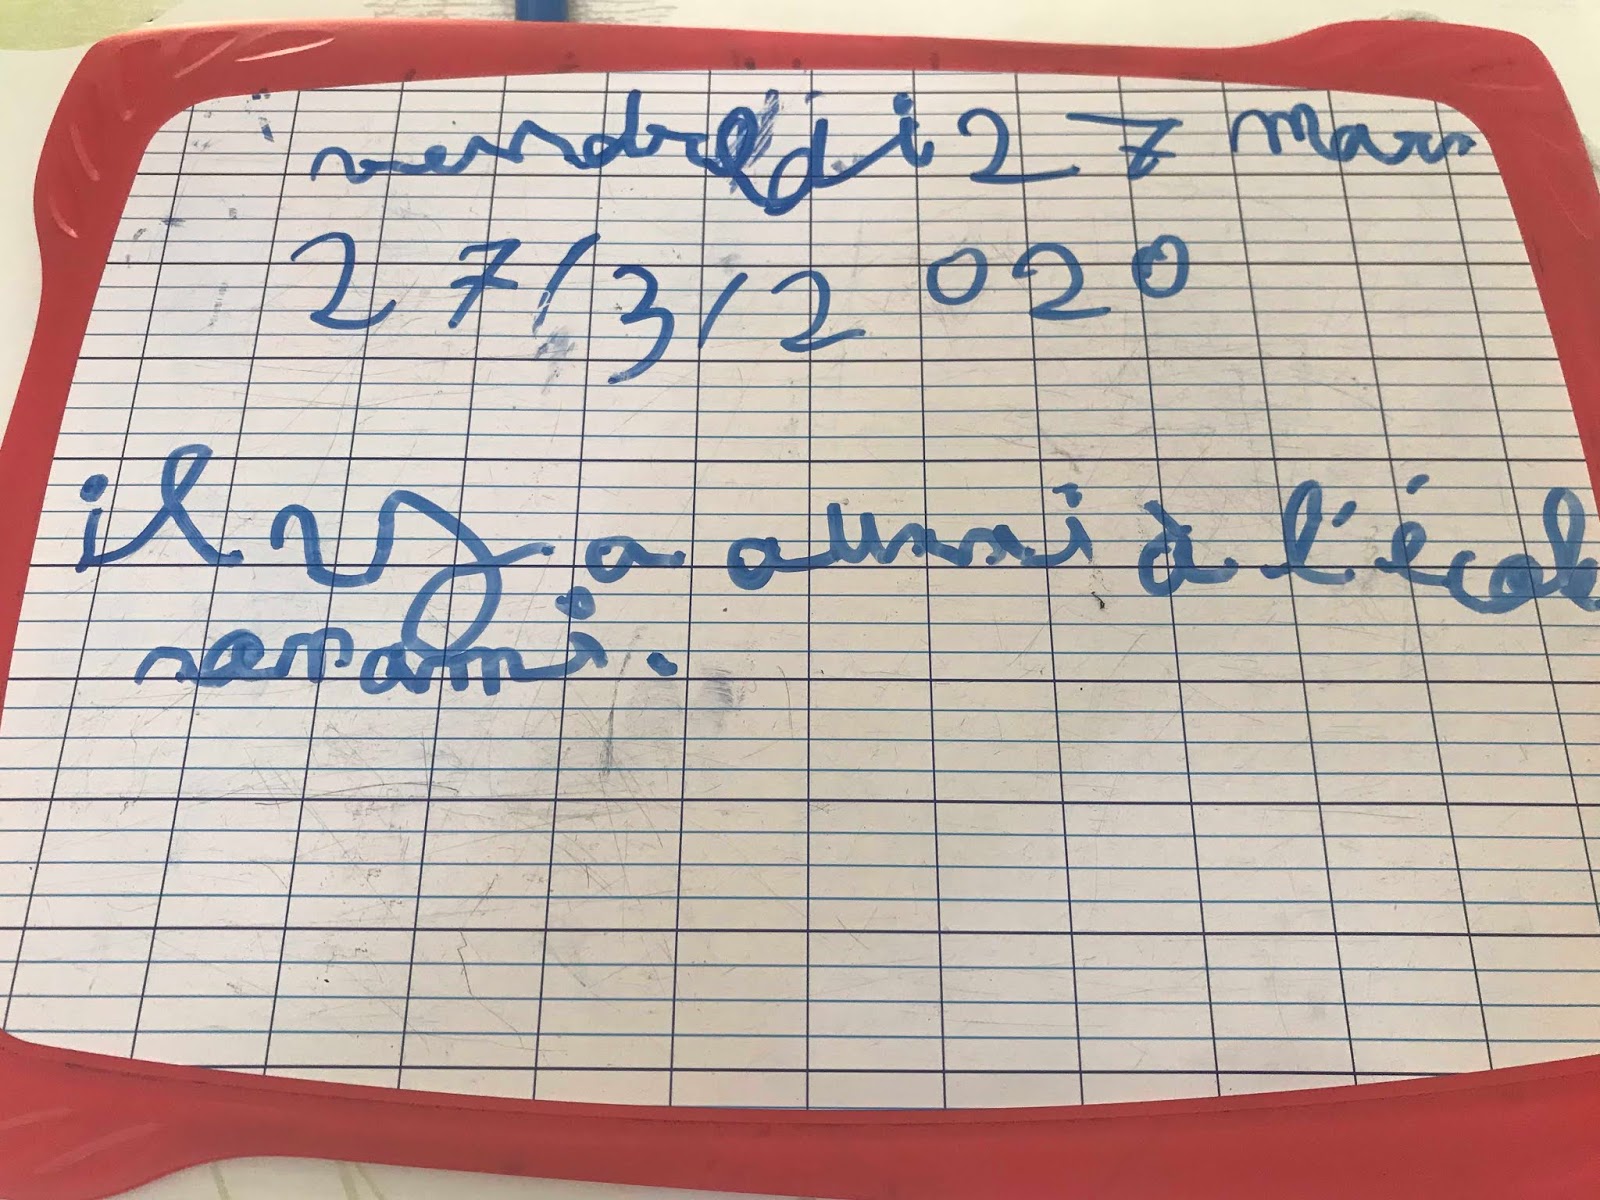 vendredi 27 mars
27/3/2020
il y a aussi à l'école
son ami.